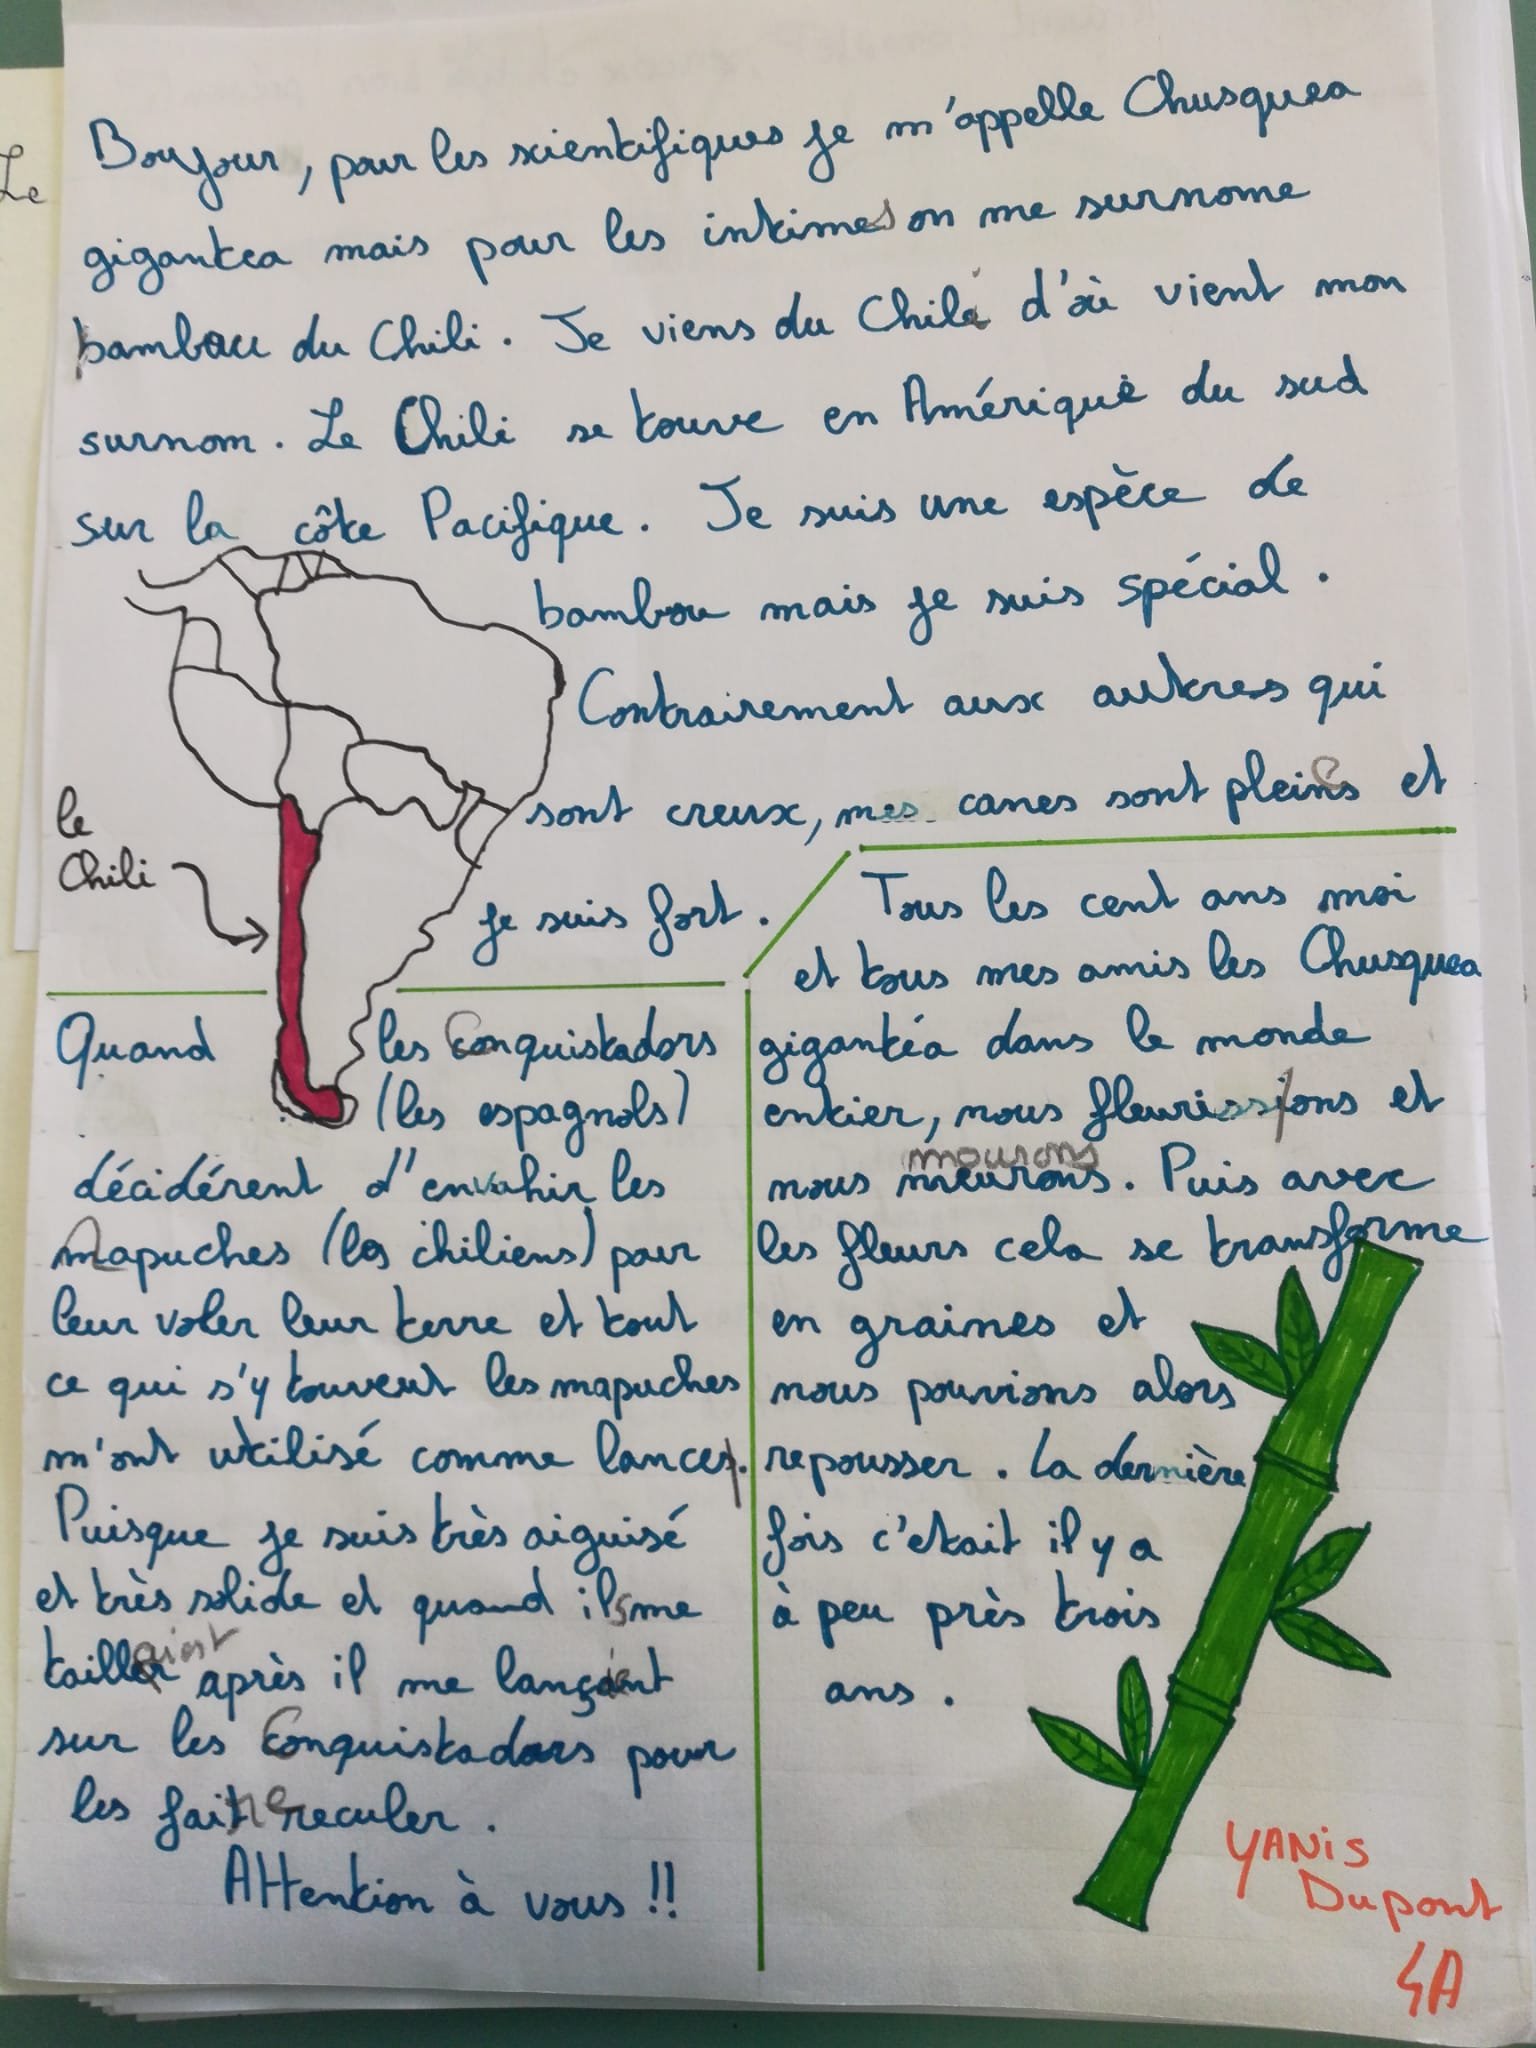 Le
Boujour, pour les scientifiques je m'appelle Chusquea
gigantea mais pour les intimes on me surnome
bambou du Chili. Je viens du Chili d'où vient mon
surnom. Le Chili se touve en Amérique du sud
sur la côte Pacifique. Je suis une espèce de
bambou mais je suis spécial.
Contrairement aux autres qui
sont creux, mes canes sont pleins et
je suis fort.
le
Chili
Quand les Conquistadors
(les espagnols)
décidérent d'envahir les
Mapuches (les chiliens) pour
leur voler leur terre et tout
ce qui s'y touvent les mapuches
m'ont utilisé comme lances.
Puisque je suis très aiguisé
et très solide et quand ils me
taillaient après il me lançaient
sur les Conquistadors pour
les faire reculer.
Attention à vous !!
Tous les cent ans moi
et tous mes amis les Chusquea
gigantéa dans le monde
entier, nous fleurissons et
mourons
nous meurons. Puis avec
les fleurs cela se transforme
en graines et
nous pouvions alors
repousser. La dernière
fois c'etait il y a
à peu près trois
ans.
YANIS
Dupont
4A